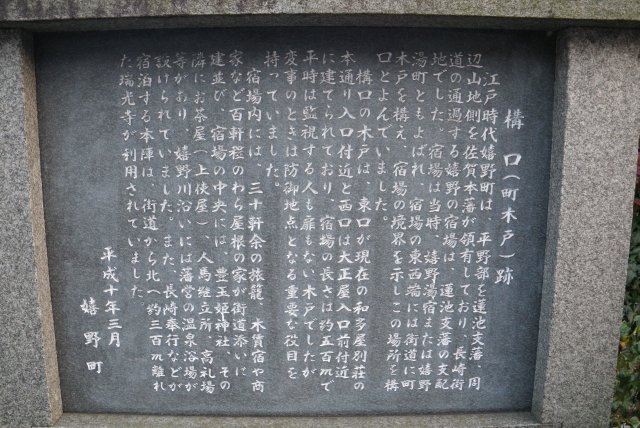 構口(町木戸)跡
江戸時代嬉野町は、平野部を蓮池支藩、周
辺山地側を佐賀本藩が領有しており、長崎街
道の通過する嬉野の宿場は、蓮池支藩の支配
地でした。宿場は当時、嬉野湯宿または嬉野
湯町ともよばれ、宿場の東西端には街道に町
木戸を構え、宿場の境界を示しこの場所を構
口とよんでいました。
構口の木戸は、東口が現在の和多屋別荘の
本通り入口付近と西口は大正屋入口前付近
に建てられており、宿場の長さは約五百mで
平時は監視する人も扉もない木戸でしたが
変事のときは防御地点となる重要な役目を
持っていました。
宿場内には、三十軒余の旅籠、木賃宿や商
家など百軒程のわら屋根の家が街道添いに
建並び、宿場の中央には、豊玉姫神社、その
隣にお茶屋(上使屋)、人馬継立所、高札場
等があり、嬉野川沿いには藩営の温泉浴場が
設けられていました。また、長崎奉行などが
宿泊する本陣は、街道から北へ約三百m離れ
た瑞光寺が利用されていました
平成十年三月
嬉野町